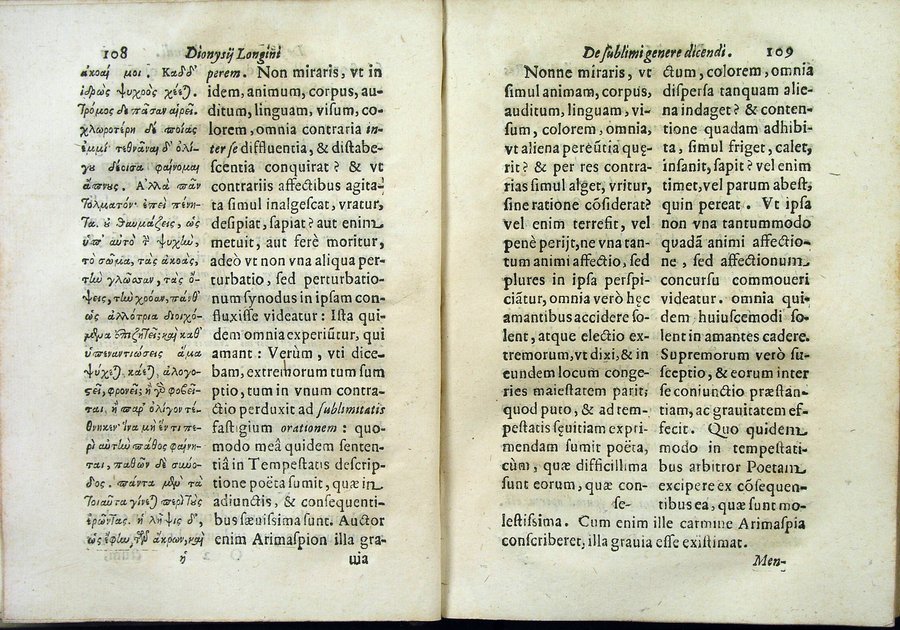 108 Dionysij Longini
ἀκοαί μοι. Καδδ'
ἱδρὼς ψυχρὸς χέε).
Τρόμος δὲ πᾶσαν αἱρεῖ.
χλωροτέρη δὲ ποίας
ἐμμὶ τεθνᾶναι δ' ὀλί-
γου δέοισα φαίνομαι
ἄπνους. Ἀλλὰ πᾶν
Τολματόν· ἐπεὶ πένη-
Τα. οὐ θαυμάζεις, ὡς
ὑπ' αὐτὸ τὴν ψυχὴν,
τὸ σῶμα, τὰς ἀκοὰς,
τὴν γλῶσσαν, τὰς ὄ-
ψεις, τὴν χρόαν, πάνθ'
ὡς ἀλλότρια διοιχό-
μενα ἐπιζητεῖ; καὶ καθ'
ὑπεναντιώσεις ἅμα
ψύχε), κάε), ἀλογι-
στεῖ, φρονεῖ; ἢ γὰρ φοβεῖ-
ται, ἢ παρ' ὀλίγον τέ-
θνηκεν· ἵνα μὴ ἕν τι πε-
ρὶ αὐτὴν πάθος φαίνη-
ται, παθῶν δὲ σύνο-
δος. πάντα μὲν τὰ
Τοιαῦτα γίνε) περὶ τοὺς
ἐρῶντας. ἡ λῆψις δ',
ὡς ἔφην, τῶν ἄκρων, καὶ
ἡ
perem. Non miraris, vt in
idem, animum, corpus, au-
ditum, linguam, visum, co-
lorem, omnia contraria in-
ter se disfluentia, & distabe-
scentia conquirat? & vt
contrariis affectibus agita-
ta simul inalgescat, vratur,
desipiat, sapiat? aut enim
metuit, aut ferè moritur,
adeò vt non vna aliqua per-
turbatio, sed perturbatio-
num synodus in ipsam con-
fluxisse videatur: Ista qui-
dem omnia experiũtur, qui
amant: Verùm, vti dice-
bam, extremorum tum sum
ptio, tum in vnum contra-
ctio perduxit ad sublimitatis
fastigium orationem: quo-
modo meâ quidem senten-
tiâ in Tempestatis descrip-
tione poëta sumit, quæ in
adiunctis, & consequenti-
bus sæuissima sunt. Auctor
enim Arimaspion illa gra-
uia
De sublimi genere dicendi. 109
Nonne miraris, vt
simul animam, corpus,
auditum, linguam, vi-
sum, colorem, omnia,
vt aliena pereũtia quę-
rit? & per res contra-
rias simul alget, vritur,
sine ratione cõsiderat?
vel enim terrefit, vel
penè perijt, ne vna tan-
tum animi affectio, sed
plures in ipsa perspi-
ciãtur, omnia verò hęc
amantibus accidere so-
lent, atque electio ex-
tremorum, vt dixi, & in
eundem locum conge-
ries maiestatem parit;
quod puto, & ad tem-
pestatis sęuitiam expri-
mendam sumit poëta,
cùm, quæ difficillima
sunt eorum, quæ con-
se-
ctum, colorem, omnia
dispersa tanquam alie-
na indaget? & conten-
tione quadam adhibi-
ta, simul friget, calet,
insanit, sapit? vel enim
timet, vel parum abest,
quin pereat. Vt ipsa
non vna tantummodo
quadã animi affectio-
ne, sed affectionum
concursu commoueri
videatur. omnia qui-
dem huiuscemodi so-
lent in amantes cadere.
Supremorum verò su-
sceptio, & eorum inter
se coniunctio præstan-
tiam, ac grauitatem ef-
fecit. Quo quidem
modo in tempestati-
bus arbitror Poetam
excipere ex cõsequen-
tibus ea, quæ sunt mo-
lestissima. Cum enim ille carmine Arimaspia
conscriberet, illa grauia esse existimat.
Men-